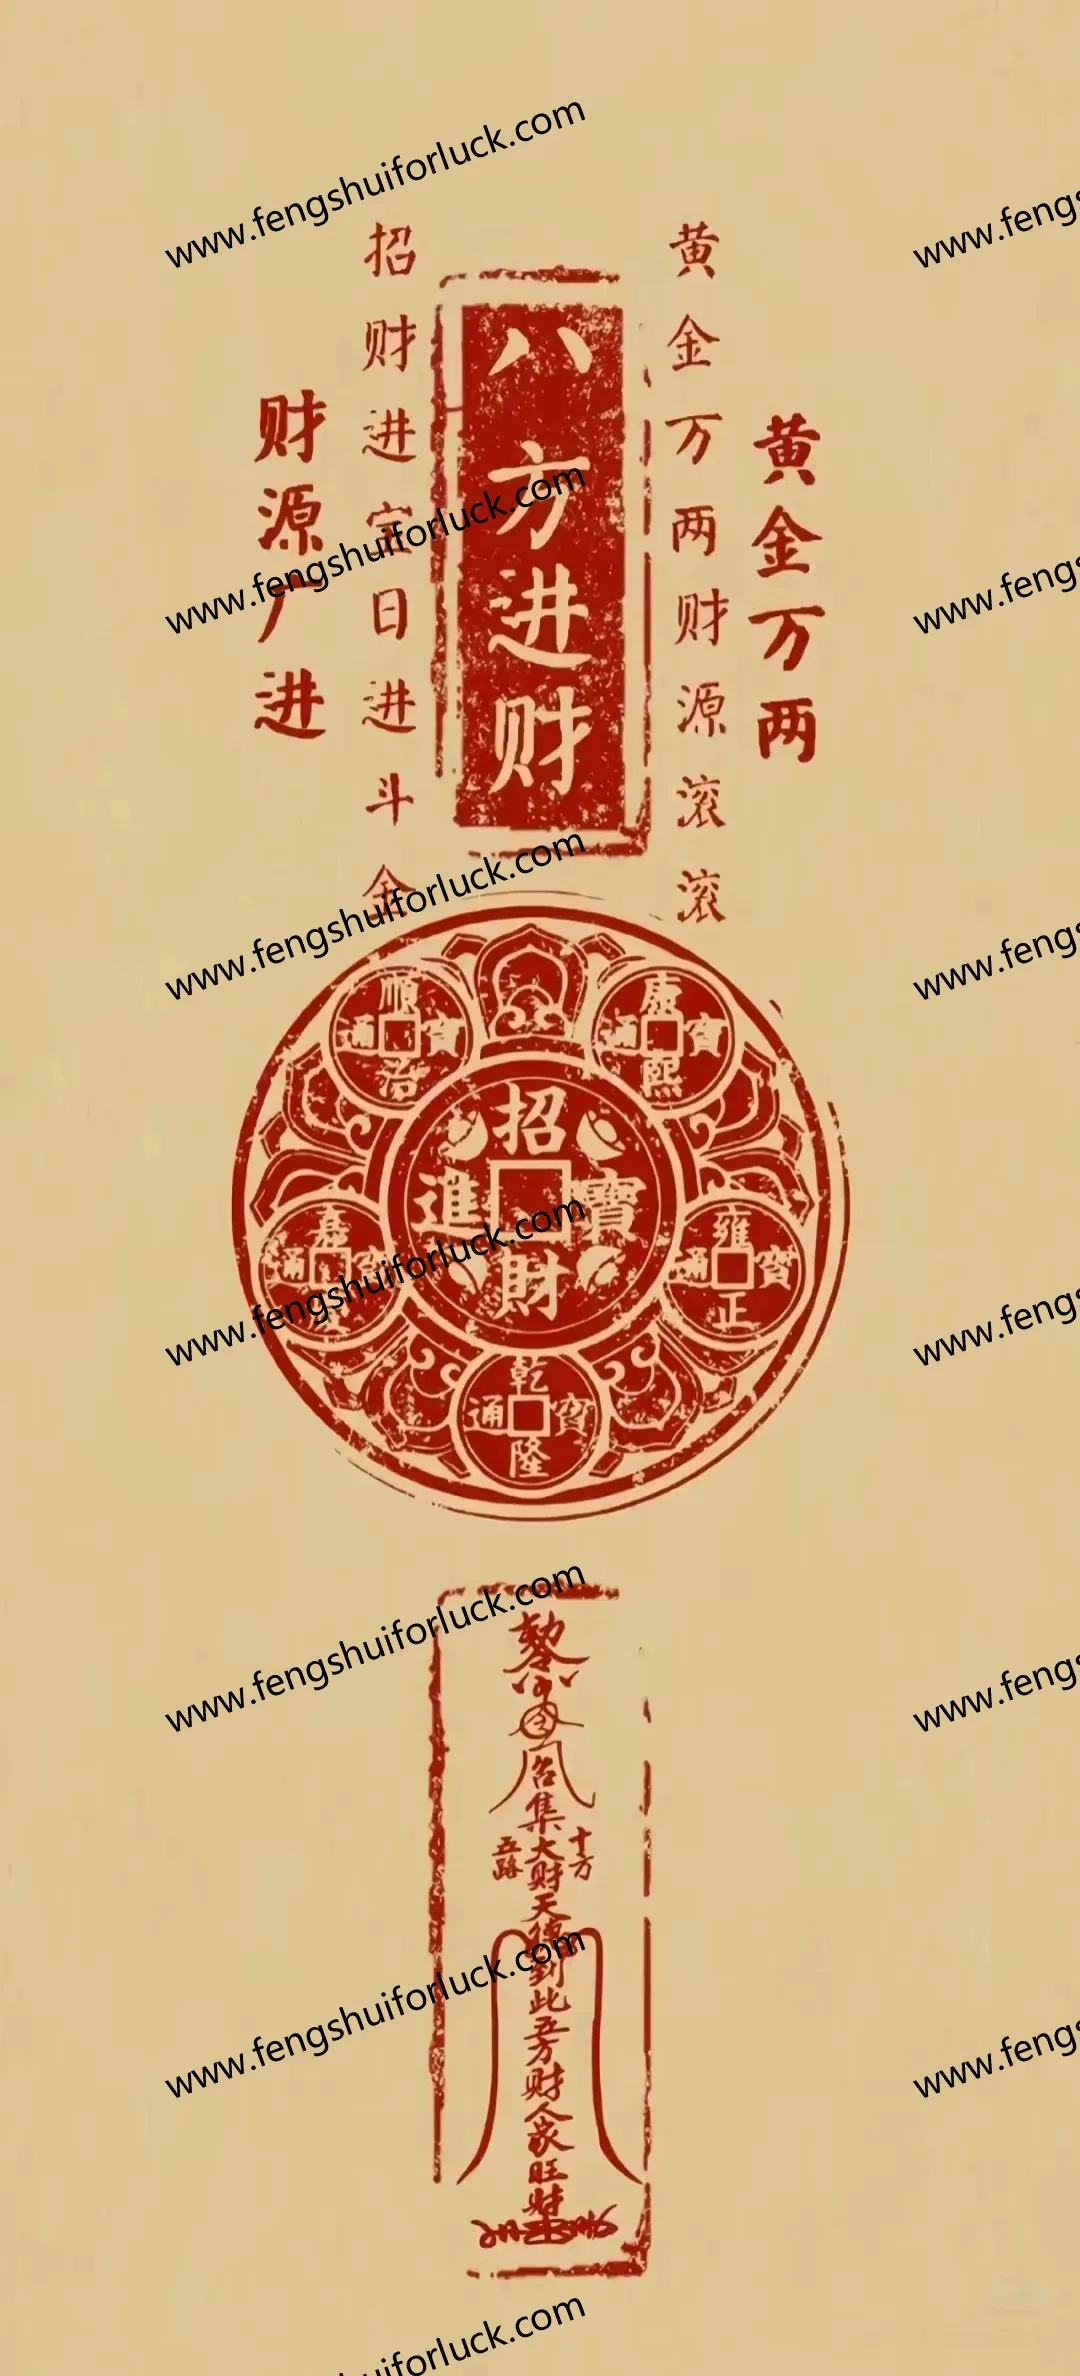 www.fengshuiforluck.com
八方进财
黄金万两
黄金万两财源滚滚
招财进宝日进斗金
财源广进
招財進寶
順治通寶
康熙通寶
雍正通寶
乾隆通寶
嘉慶通寶
敕令
召集
十方
五路
大财天德到此五方财人家旺财
www.fengshuiforluck.com
www.fengshuiforluck.com
www.fengshuiforluck.com
www.fengshuiforluck.com
www.fengshuiforluck.com
www.fengshuiforluck.com